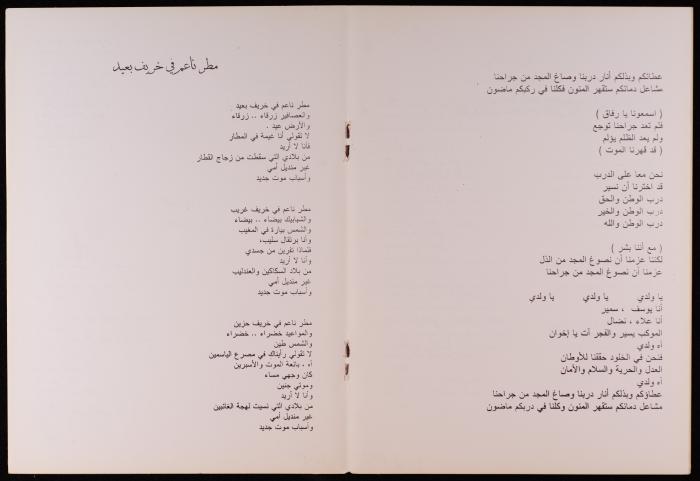 عطائكم وبذلكم أنار دربنا وصاغ المجد من جراحنا
مشاعل دمائكم ستقهر المنون فكلنا في ركبكم ماضون
( اسمعونا يا رفاق )
فلم تعد جراحنا توجع
ولم يعد الظلم يؤلم
( قد قهرنا الموت )
نحن معا على الدرب
قد اخترنا أن نسير
درب الوطن والحق
درب الوطن والخير
درب الوطن والله
( مع أننا بشر )
لكننا عزمنا أن نصوغ المجد من الذل
عزمنا أن نصوغ المجد من جراحنا
يا ولدي يا ولدي يا ولدي
أنا يوسف ، سمير
أنا علاء ، نضال
الموكب يسير والفجر آت يا إخوان
آه ولدي
فنحن في الخلود حققنا للأوطان
العدل والحرية والسلام والأمان
آه ولدي
عطاؤكم وبذلكم أنار دربنا وصاغ المجد من جراحنا
مشاعل دمائكم ستقهر المنون وكلنا في دربكم ماضون
مطر ناعم في خريف بعيد
مطر ناعم في خريف بعيد
والعصافير زرقاء .. زرقاء
والأرض عيد .
لا تقولي أنا غيمة في المطار
فأنا لا أريد
من بلادي التي سقطت من زجاج القطار
غير منديل أمي
وأسباب موت جديد
مطر ناعم في خريف غريب
والشبابيك بيضاء .. بيضاء
والشمس بيارة في المغيب
وأنا برتقال سليب،
فلماذا تفرين من جسدي
وأنا لا أريد
من بلاد السكاكين والعندليب
غير منديل أمي
وأسباب موت جديد
مطر ناعم في خريف حزين
والمواعيد خضراء .. خضراء
والشمس طين
لا تقولي رأيناك في مصرع الياسمين
آه ، بائعة الموت والأسبرين
كان وجهي مساء
وموتي جنين
وأنا لا أريد
من بلادي التي نسيت لهجة الغائبين
غير منديل أمي
وأسباب موت جديد